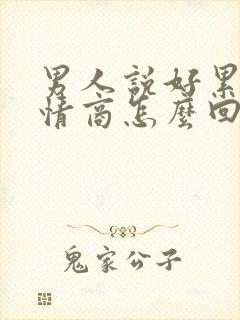 男人説好累
情商怎麼回
鬼家公子